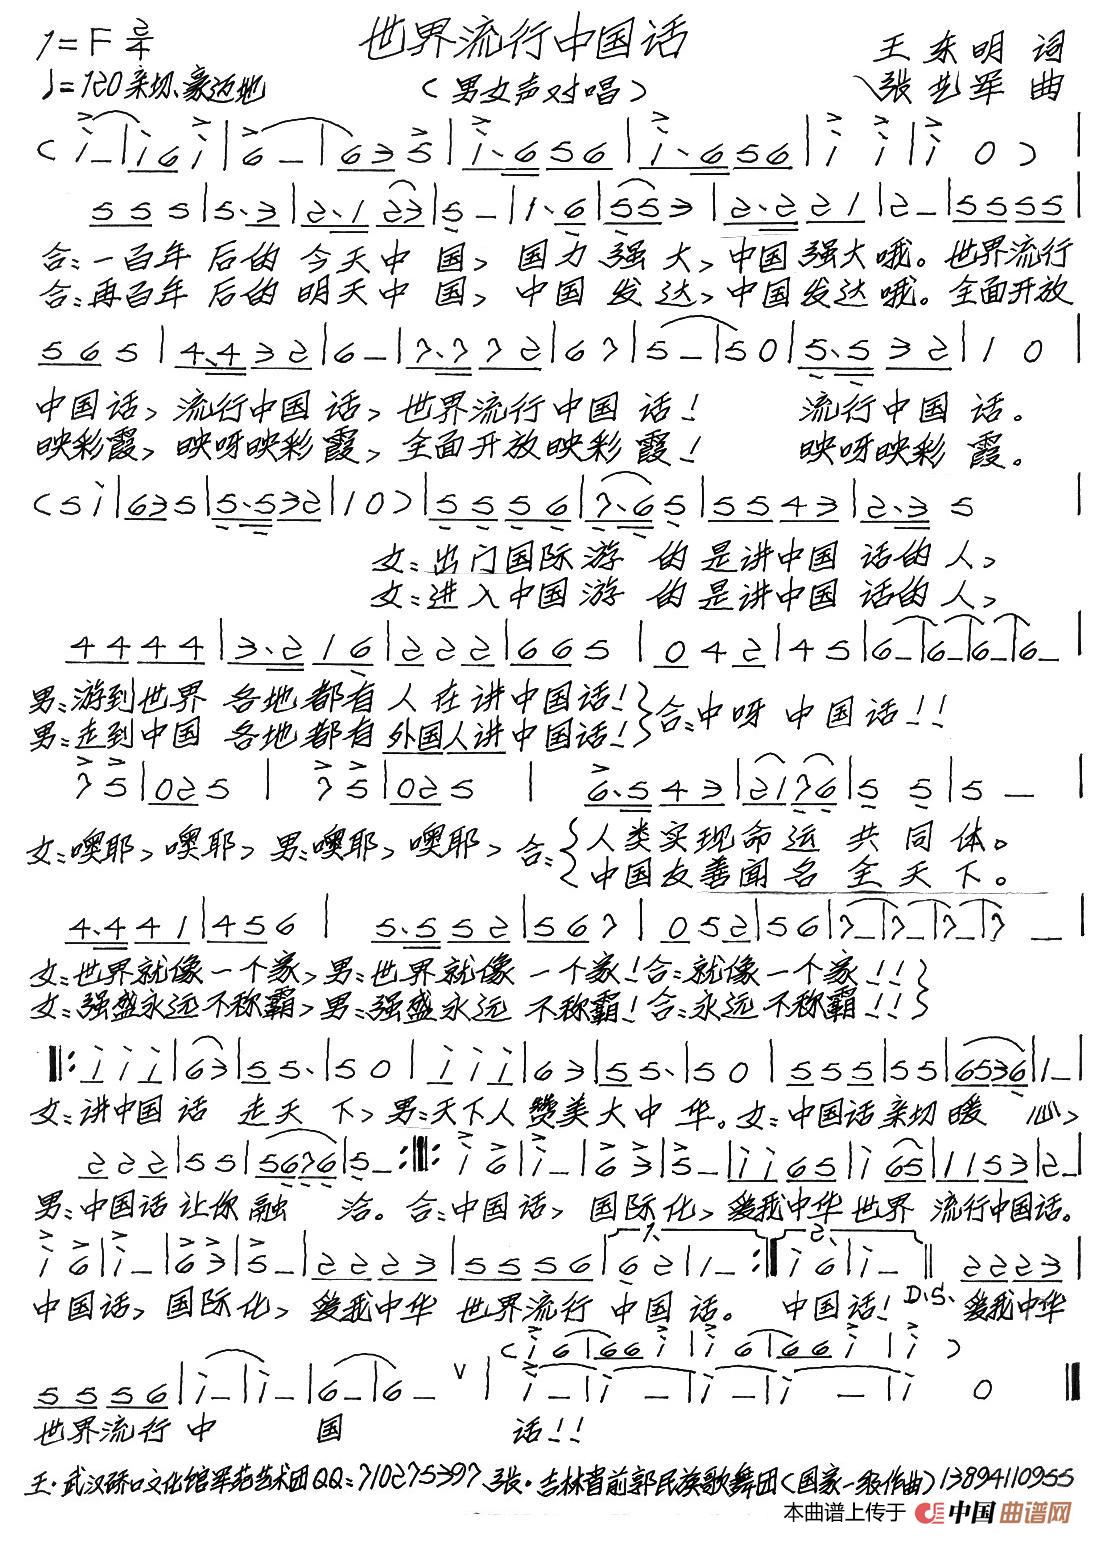 1=F 2/4
世界流行中国话
王东明 词
♩=120 亲切、豪迈地
（男女声对唱）
张艺军 曲
( i - | i 6 i | 6 - | 6 3 5 | i . 6 5 6 | i . 6 5 6 | i i | i 0 ) |
5 5 5 | 5 . 3 | 2 . 1 2 3 | 5 - | 1 . 6 | 5 5 3 | 2 . 2 2 1 | 2 - | 5 5 5 5 |
合：一百年 后的 今天中 国， 国力 强大，中国强大哦。世界流行
合：再百年 后的 明天中 国， 中国 发达，中国发达哦。全面开放
5 6 5 | 4 . 4 3 2 | 6 - | 7 . 7 7 2 | 6 7 | 5 - | 5 0 | 5 . 5 3 2 | 1 0 |
中国话，流行中国话，世界流行中国话！ 流行中国话。
映彩霞，映呀映彩霞，全面开放映彩霞！ 映呀映彩霞。
( 5 i | 6 3 5 | 5 . 5 3 2 | 1 0 ) | 5 5 5 6 | 7 . 6 5 | 5 5 4 3 | 2 . 3 5 |
女：出门国际游 的是讲中国 话的人，
女：进入中国游 的是讲中国 话的人，
4 4 4 4 | 3 . 2 1 6 | 2 2 2 | 6 6 5 | 0 4 2 | 4 5 | 6 - | 6 - | 6 - | 6 - |
男：游到世界 各地都有人在讲中国话！ 合：中呀 中国话！！
男：走到中国 各地都有外国人讲中国话！
7 5 | 0 2 5 | 7 5 | 0 2 5 | 6 . 5 4 3 | 2 1 7 6 | 5 5 | 5 - |
女：噢耶，噢耶，男：噢耶，噢耶，合：人类实现命运 共同体。
中国友善闻名 全天下。
4 . 4 4 1 | 4 5 6 | 5 . 5 5 2 | 5 6 7 | 0 5 2 | 5 6 | 7 - | 7 - | 7 - | 7 - |
女：世界就像一个家，男：世界就像 一个家！合：就像一个家！！
女：强盛永远不称霸，男：强盛永远 不称霸！合：永远不称霸！！
‖: i i i | 6 3 | 5 5 . | 5 0 | i i i | 6 3 | 5 5 . | 5 0 | 5 5 5 | 5 5 | 6 5 3 6 | 1 - |
女：讲中国话 走天下，男：天下人赞美大中华。女：中国话亲切暖 心，
2 2 2 | 5 5 | 5 6 7 6 | 5 - :‖: i 6 | i - | 6 3 | 5 - | i i 6 5 | i 6 5 | 1 1 5 3 | 2 - |
男：中国话让你融 洽。合：中国话，国际化，爱我中华世界 流行中国话。
i 6 | i - | 6 3 | 5 - | 2 2 2 3 | 5 5 5 6 | 1. 6 2 | 1 - :‖ 2. i 6 | i - ‖ 2 2 2 3 |
中国话，国际化，爱我中华 世界流行 中国话。 中国话！ D.S. 爱我中华
( i 6 | 6 6 i | i 6 | 6 6 i | i )
5 5 5 6 | i - | i - | 6 - | 6 - ∨ | i - | i - | i - | i - | i 0 ‖
世界流行中 国 话！！
王·武汉硚口文化馆军苑艺术团QQ：710275397，张·吉林省前郭民族歌舞团（国家一级作曲）13894110955
本曲谱上传于 中国曲谱网